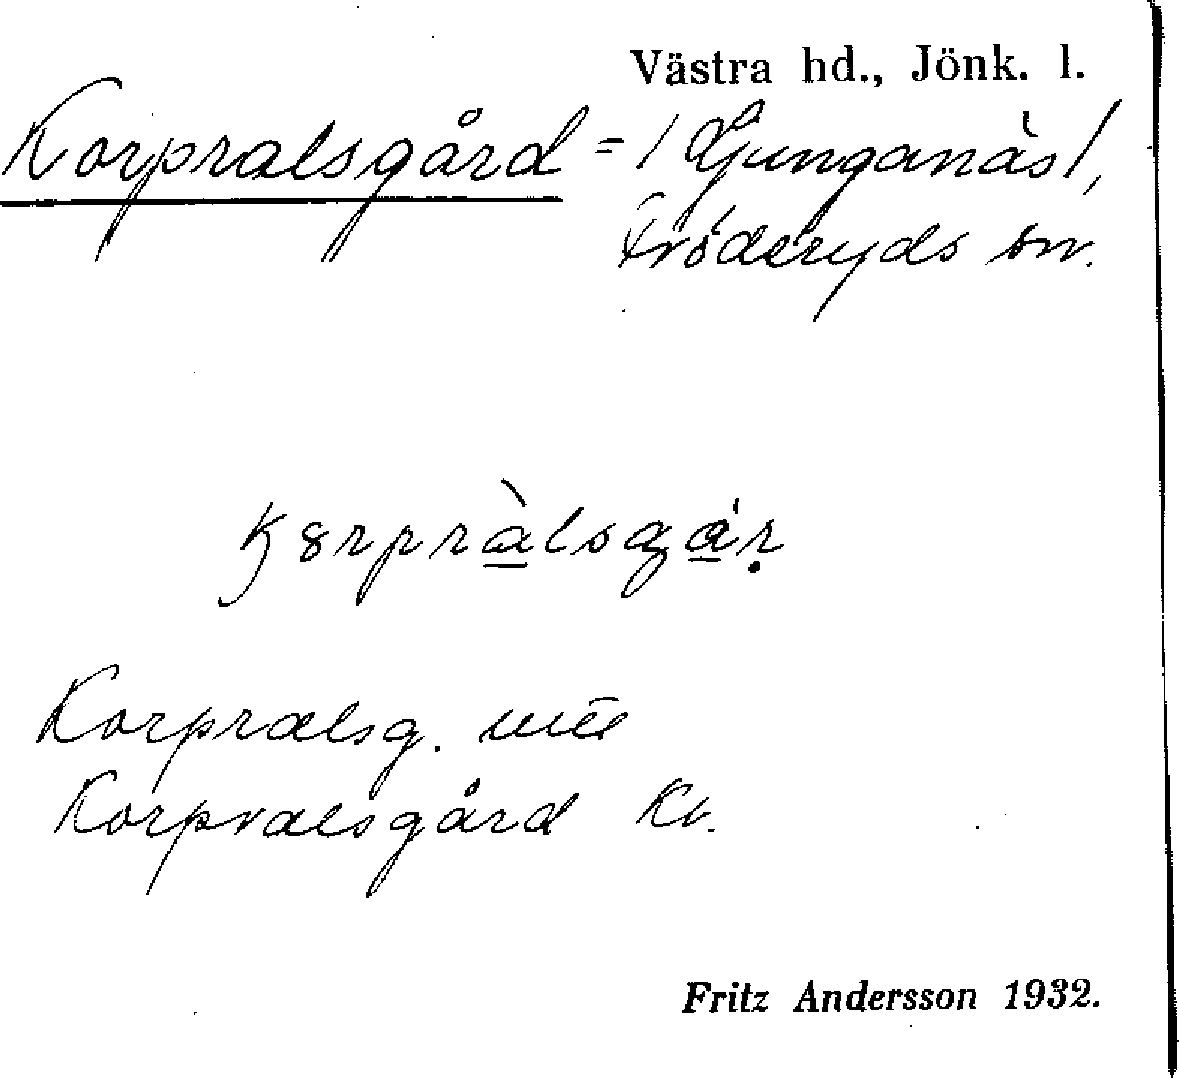 Västra hd., Jönk. l.
Korpralsgård = / Ljunganäs /,
Fröderyds sn.
Korpralsg.
Korpralsgård Kv.
Fritz Andersson 1932.